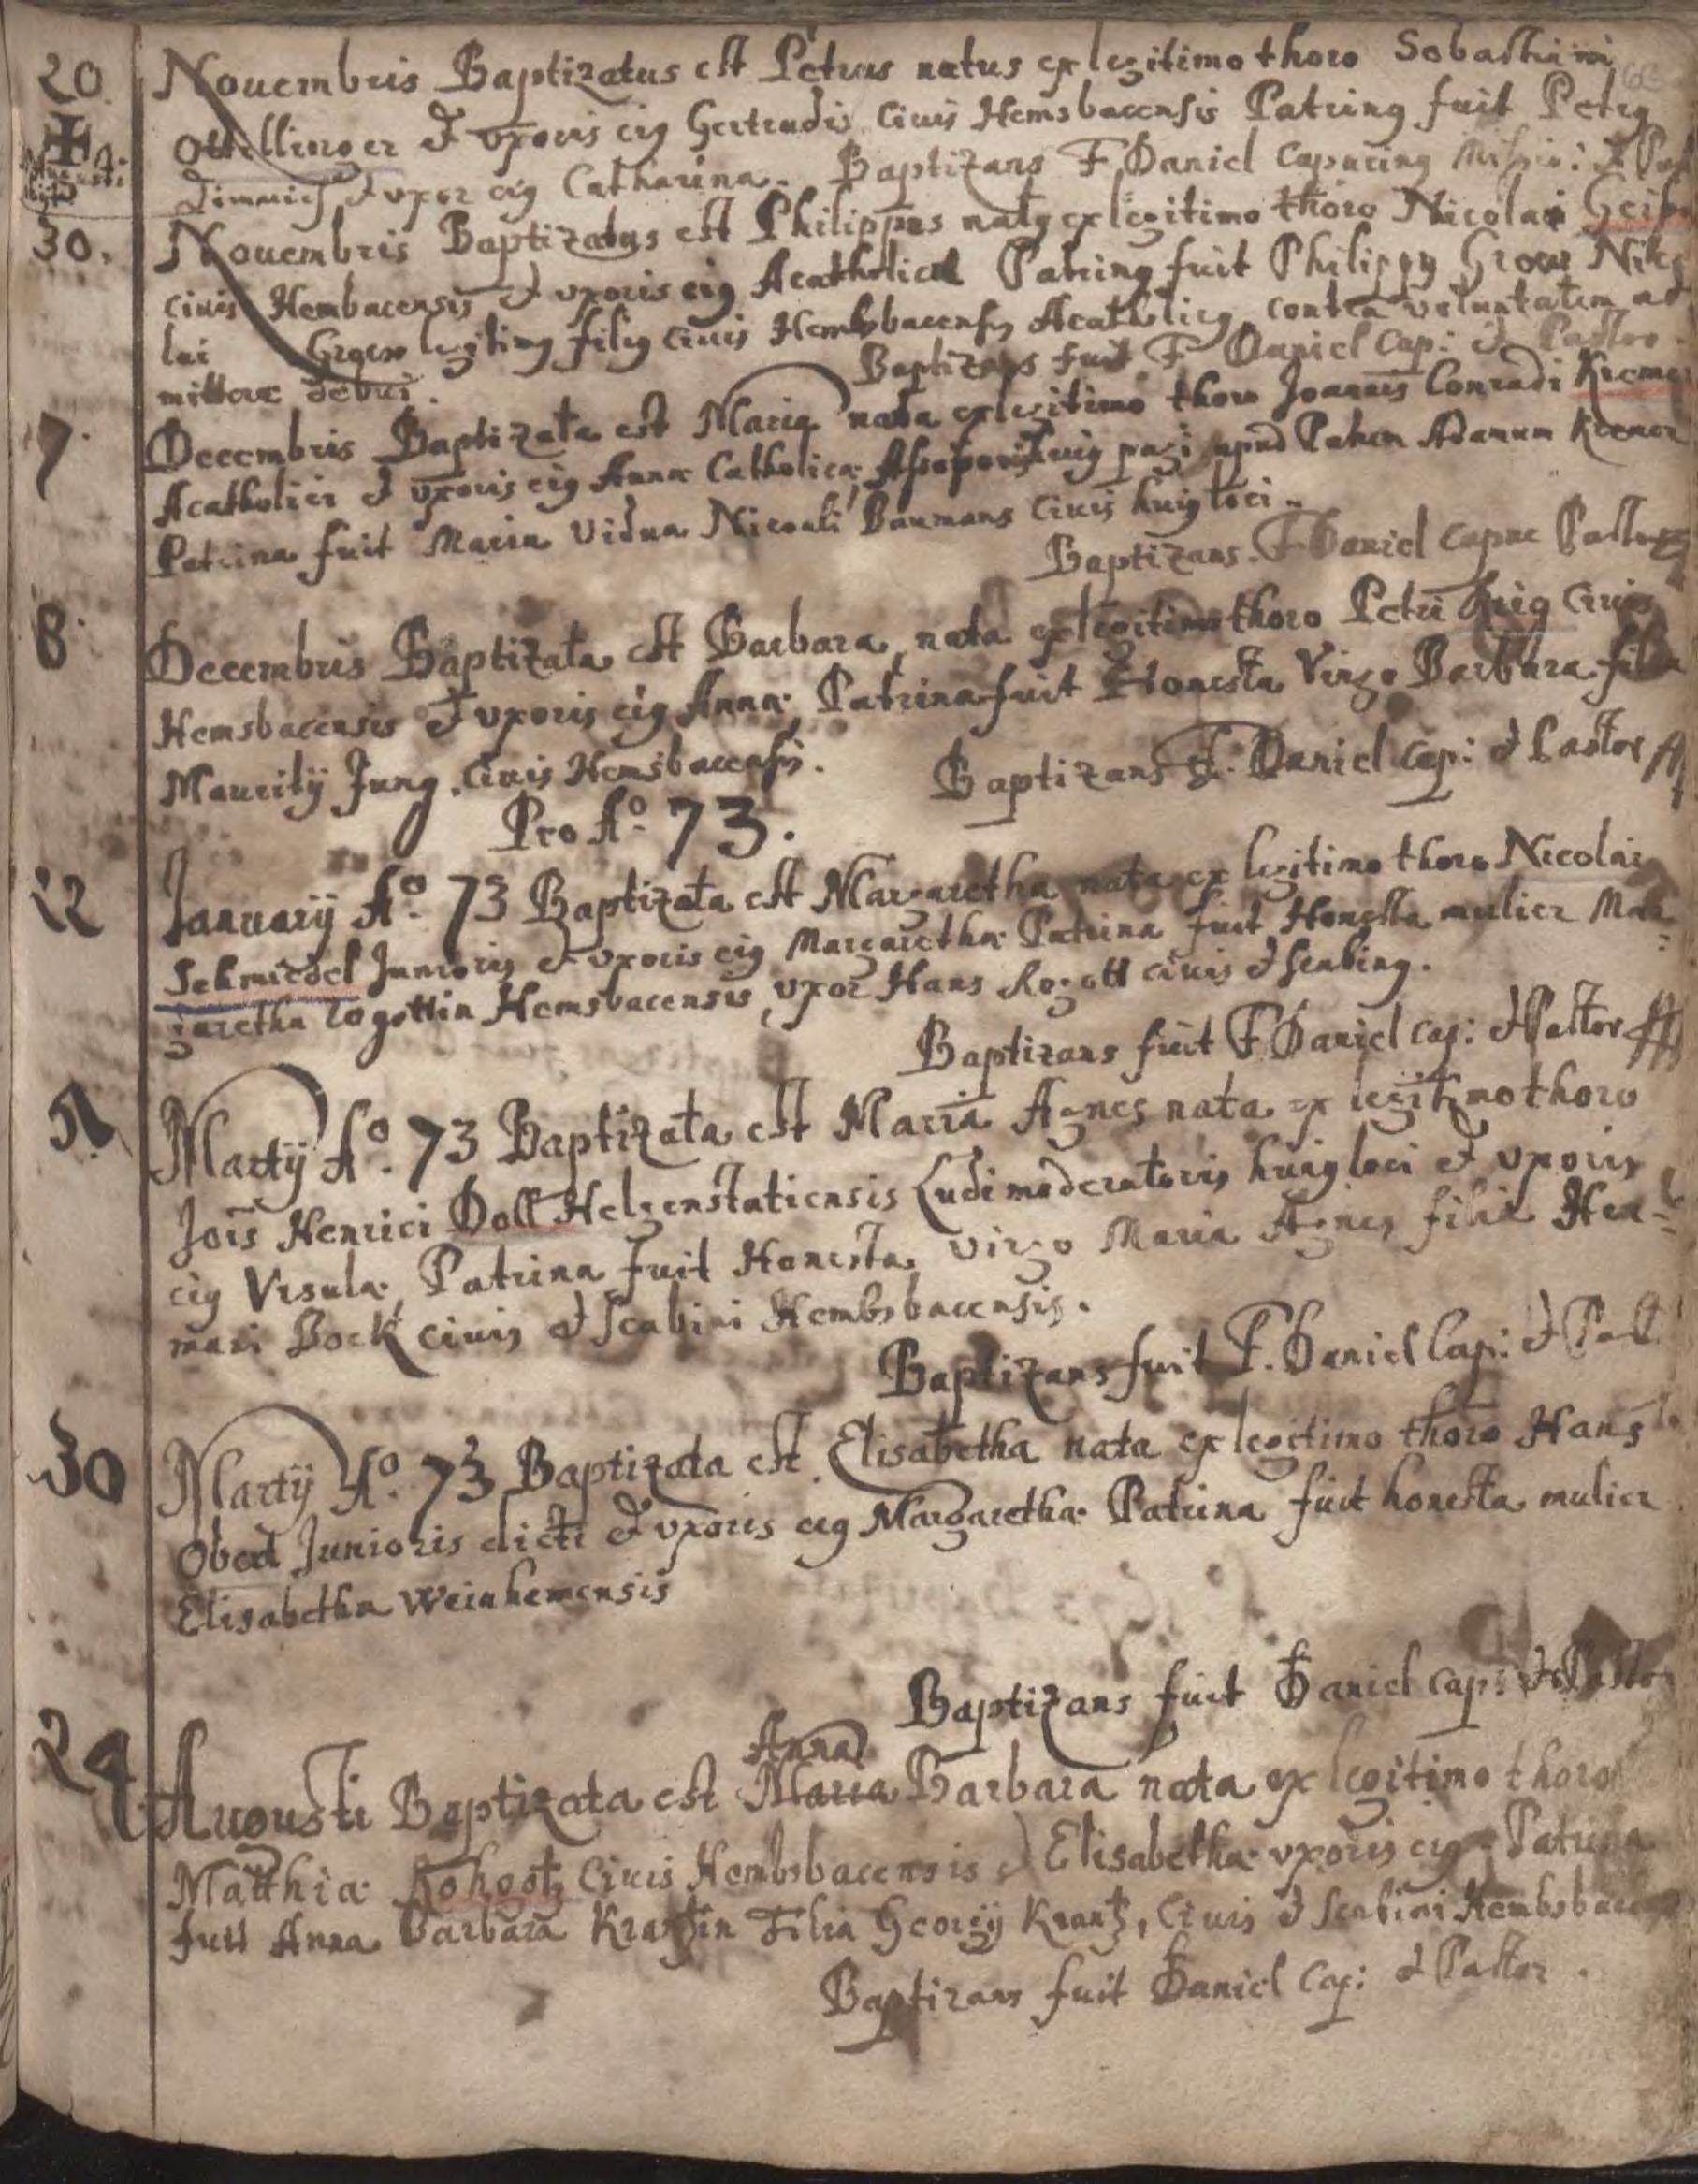 20. Nouembris Baptizatus est Petrus natus ex legitimo thoro Sobastiani
Ottellinger et vxoris eig Gertrudis Ciuis Hemsbacensis Patring fuit Petrg
et vxor eig Catharina. Baptizans F Daniel Capucing
30. Nouembris Baptizatus est Philippus natg ex legitimo thoro Nicolai
ciuis Hembacensis et vxoris eig Acatholicae Patring fuit Philippg
lai legitimg filg ciuis Hembsbacensis Acatholicg contra voluntatem ad
mittere debui. Baptizans fuit F Daniel Cap: et Pastor.
7. Decembris Baptizata est Maria nata ex legitimo thoro Joannis Conradi Kremer
Acatholici et vxoris eig Annae Catholicae huig pagi apud Adamum Kremer
Patrina fuit Maria Vidua Nicolai Baumans Ciuis huig loci.
Baptizans. F Daniel Capuc Pastor
8. Decembris Baptizata est Barbara, nata ex legitimo thoro Petri Ciuis
Hemsbacensis et vxoris eig Annae, Patrina fuit Honesta Virgo Barbara filia
Mauritij Jung. Ciuis Hemsbacensis. Baptizans F. Daniel Cap: et Pastor
Pro Ao. 73.
22 Januarij Ao. 73 Baptizata est Margaretha nata ex legitimo thoro Nicolai
Schmiedel Junioris et vxoris eig Margarethae Patrina fuit Honesta mulier Mar=
garetha Hemsbacensis, vxor Hans ciuis et scabing.
Baptizans fuit F Daniel Cap: et Pastor
Martij Ao. 73 Baptizata est Maria Agnes nata ex legitimo thoro
Jois Henrici Doll Ludimoderatoris huig loci et vxoris
eig Vrsulae, Patrina fuit Honesta virgo Maria Agnes filia Her=
mani Bock ciuis et Scabini Hembsbacensis.
Baptizans fuit F. Daniel Cap: et Past
30 Martij Ao. 73 Baptizata est Elisabetha nata ex legitimo thoro Hans
Obed Junioris dicti et vxoris eig Margarethae Patrina fuit honesta mulier
Elisabetha Weinhemensis
Baptizans fuit Daniel Cap: et Pastor
Anna
24 Augusti Baptizata est Maria Barbara nata ex legitimo thoro
Matthiae Kohgotz Ciuis Hembsbacensis et Elisabethae vxoris eig. Patrina
fuit Anna Barbara Krantzin Filia Georgij Krantz, Ciuis et Scabini
Baptizans fuit Daniel Cap: et Pastor.